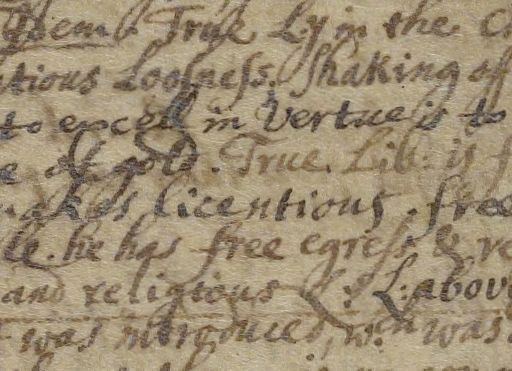 Idem. True Ly in the
tious loosness. Shaking off
to exceed in Vertue is to
e of gold. True Lib: is f
makes licentious. free
le. he has free egress & re
and religious L: L: above
was introduced, wch was